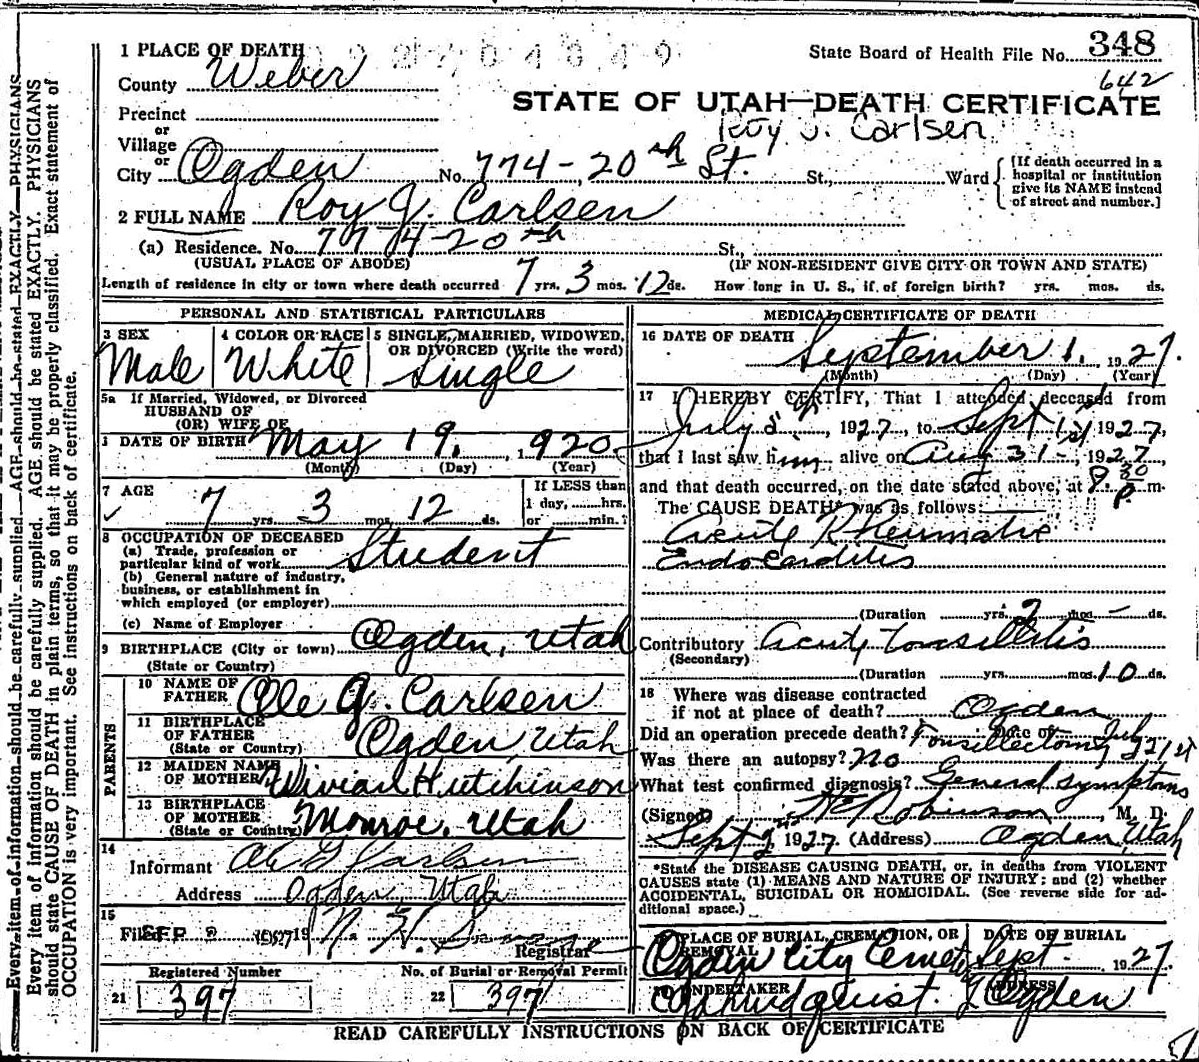 1 PLACE OF DEATH
State Board of Health File No. 348
County Weber
642
STATE OF UTAH—DEATH CERTIFICATE
Precinct
or
Village
Roy J. Carlsen
or
City Ogden No. 774-20th St. St., Ward
[If death occurred in a
hospital or institution
give its NAME instead
of street and number.]
2 FULL NAME Roy J. Carlsen
(a) Residence. No. 774-20th St.,
(USUAL PLACE OF ABODE) (IF NON-RESIDENT GIVE CITY OR TOWN AND STATE)
Length of residence in city or town where death occurred 7 yrs. 3 mos. 12 ds. How long in U. S., if of foreign birth? yrs. mos. ds.
PERSONAL AND STATISTICAL PARTICULARS
3 SEX 4 COLOR OR RACE 5 SINGLE, MARRIED, WIDOWED,
OR DIVORCED (Write the word)
Male White Single
5a If Married, Widowed, or Divorced
HUSBAND OF
(OR) WIFE OF
DATE OF BIRTH May 19, 1920
(Month) (Day) (Year)
7 AGE
If LESS than
1 day, hrs.
or min.?
7 yrs. 3 mos. 12 ds.
8 OCCUPATION OF DECEASED
(a) Trade, profession or
particular kind of work Student
(b) General nature of industry,
business, or establishment in
which employed (or employer)
(c) Name of Employer
9 BIRTHPLACE (City or town) Ogden, Utah
(State or Country)
PARENTS
10 NAME OF
FATHER Ole G. Carlsen
11 BIRTHPLACE
OF FATHER
(State or Country) Ogden Utah
12 MAIDEN NAME
OF MOTHER Vivian Hutchinson
13 BIRTHPLACE
OF MOTHER
(State or Country) Monroe, Utah
14
Informant Ole G Carlsen
Address Ogden, Utah
15
Filed SEP 1927 N. H.
Registrar
Registered Number No. of Burial or Removal Permit
21 397 22 397
MEDICAL CERTIFICATE OF DEATH
16 DATE OF DEATH
September 1, 1927.
(Month) (Day) (Year)
17 I HEREBY CERTIFY, That I attended deceased from
July 1927, to Sept 1st 1927,
that I last saw him alive on Aug 31-, 1927,
and that death occurred, on the date stated above, at 8:30 P m.
The CAUSE DEATH* was as follows:
Acute Rheumatic
Endocarditis
(Duration yrs. 2 mos - ds.
Contributory Acute tonsillitis
(Secondary)
(Duration yrs. mos. 10 ds.
18 Where was disease contracted
if not at place of death? Ogden
Did an operation precede death? Tonsillectomy Date of July 21st
Was there an autopsy? no
What test confirmed diagnosis? General symptoms
(Signed) Robinson, M. D.
Sept 2, 1927 (Address) Ogden, Utah
*State the DISEASE CAUSING DEATH, or, in deaths from VIOLENT
CAUSES state (1) MEANS AND NATURE OF INJURY; and (2) whether
ACCIDENTAL, SUICIDAL OR HOMICIDAL. (See reverse side for ad-
ditional space.)
PLACE OF BURIAL, CREMATION, OR
REMOVAL
DATE OF BURIAL
Ogden City Cemetery Sept 1927.
UNDERTAKER ADDRESS
Ogden
READ CAREFULLY INSTRUCTIONS ON BACK OF CERTIFICATE
Every item of information should be carefully supplied. AGE should be stated EXACTLY. PHYSICIANS
Every item of information should be carefully supplied. AGE should be stated EXACTLY. PHYSICIANS
should state CAUSE OF DEATH in plain terms, so that it may be properly classified. Exact statement of
OCCUPATION is very important. See instructions on back of certificate.